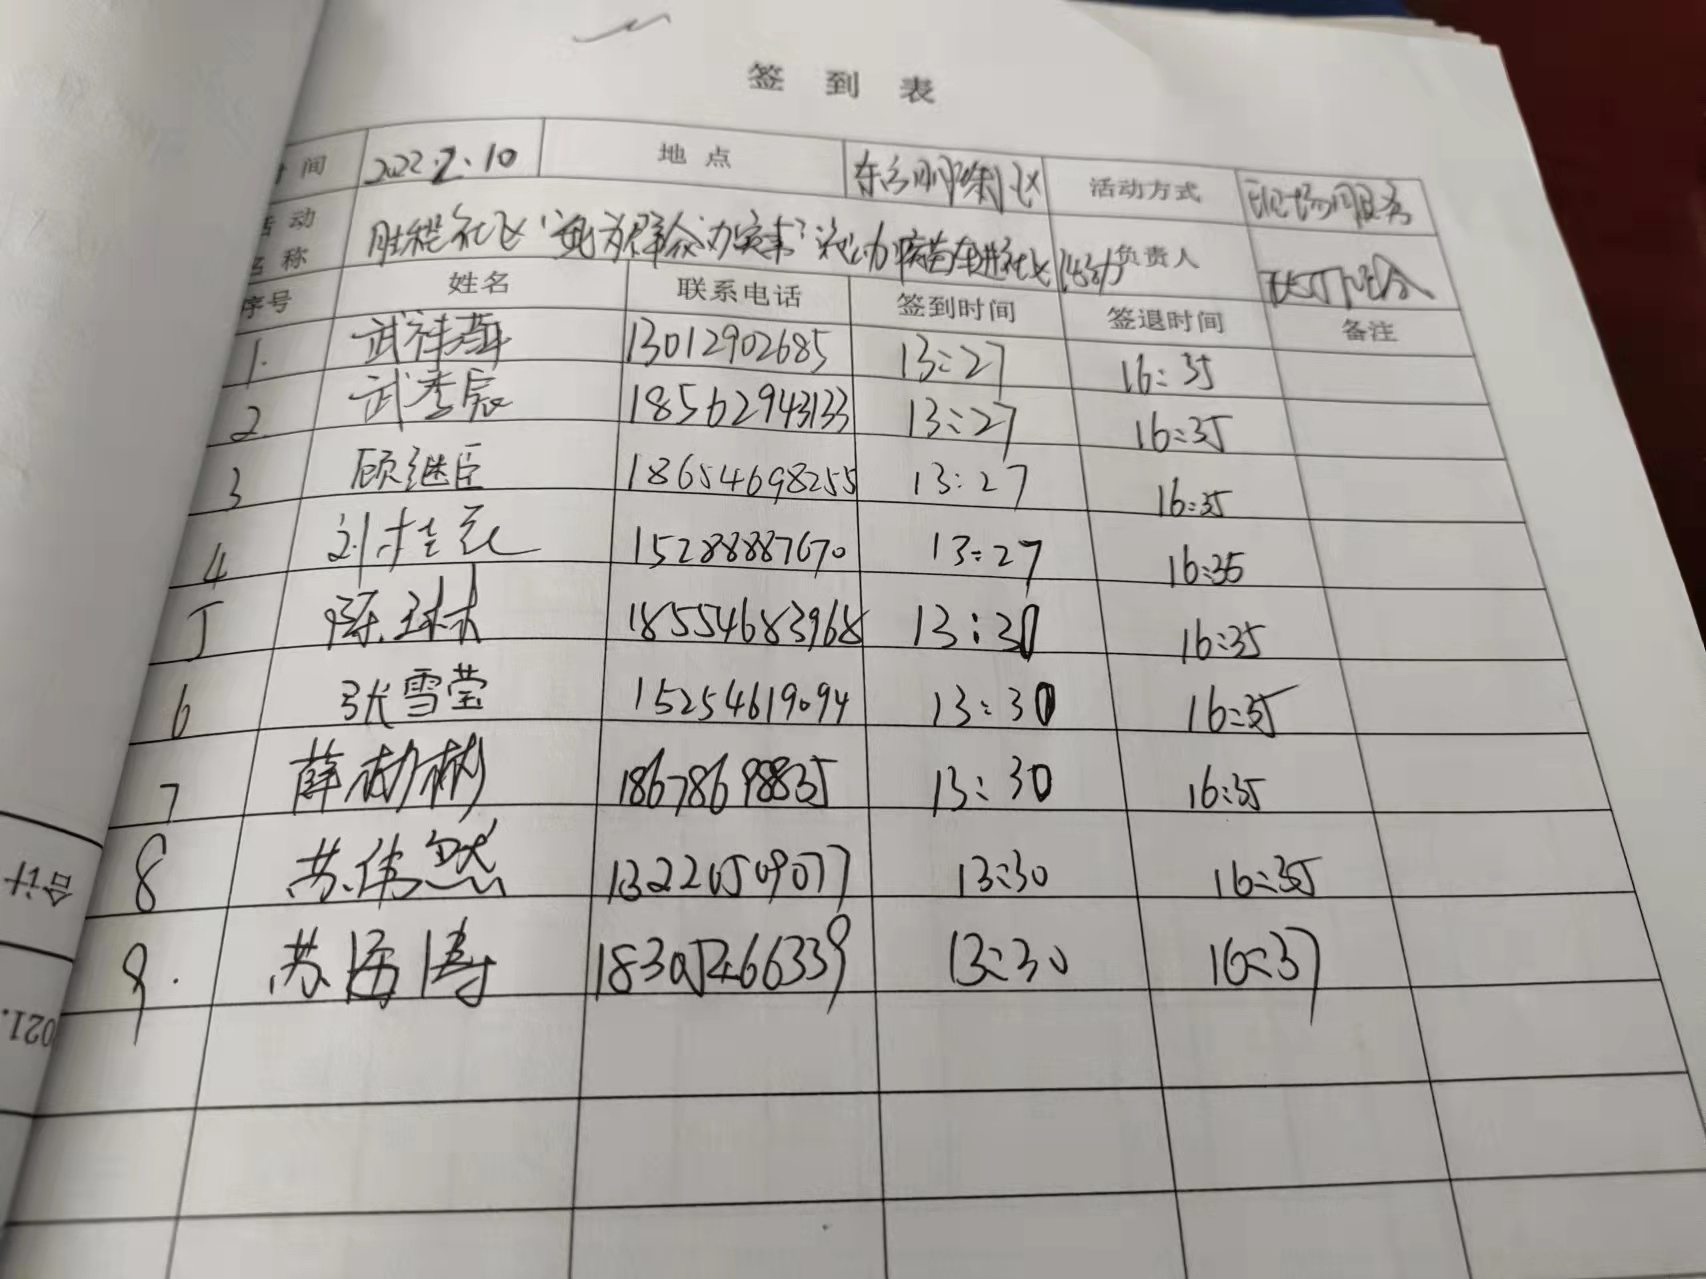 签 到 表
时 间 2022.2.10 地 点 活动方式 现场服务
活 动 名 称 胜 社区“我为群众办实事”流动 苗车进社区活动 负责人
序号 姓名 联系电话 签到时间 签退时间 备注
1. 武 13012902685 13:27 16:35
2. 武秀辰 18562943133 13:27 16:35
3 顾继臣 18654698255 13:27 16:35
4 刘桂花 15288887670 13:27 16:35
5 陈琳 18554683968 13:30 16:35
6 张雪莹 15254619094 13:30 16:35
7 薛 彬 18678698835 13:30 16:35
8 苏伟然 13220509077 13:30 16:35
9. 苏海涛 18305466339 13:30 16:37
合计
021.